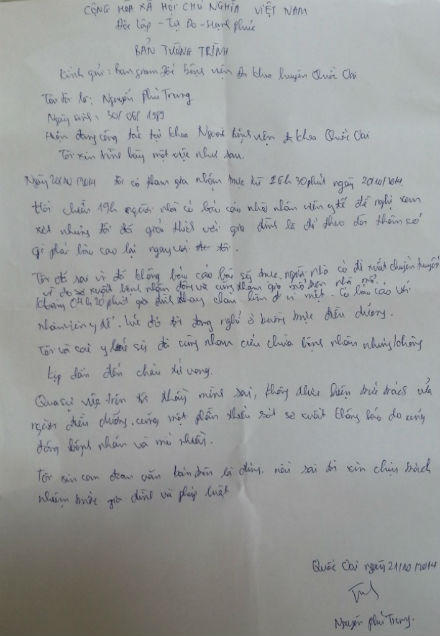 CỘNG HÒA XÃ HỘI CHỦ NGHĨA VIỆT NAM
Độc lập - Tự Do - Hạnh phúc
BẢN TƯỜNG TRÌNH
Kính gửi: Ban giám đốc bệnh viện đa khoa huyện Quốc Oai
Tên tôi là: Nguyễn Phú Trung
Ngày sinh: 30/ 1989
Hiện đang công tác tại khoa Ngoại bệnh viện đa khoa Quốc Oai
Tôi xin trình bày một việc như sau.
Ngày 20/10/2014 tôi có tham gia nhận trực từ 16h30 phút ngày 20/10/2014
Hồi 19h người nhà có báo cáo nhờ nhân viên y tế để nghị xem
xét nhưng tôi đã giải thích với gia đình là để theo dõi thêm có
gì phải báo cáo lại ngay với tôi.
Tôi đã sai vì đã không báo cáo bác sỹ trực, người nhà có đề xuất chuyển tuyến
vì do sơ xuất bệnh nhân đông và cũng
Khoảng 04h20 phút gia đình thấy chân bị mệt. Có báo cáo với
nhân viên y tế. Lúc đó tôi đang nghỉ ở buồng trực điều dưỡng.
Tôi và bác sỹ đã cùng nhau cứu chữa bệnh nhân nhưng không
kịp dẫn đến cháu tử vong.
Qua sự việc trên tôi thấy mình sai, không thực hiện trách của
người điều dưỡng. cũng một phần thiếu sót sơ xuất không báo do cũng
đông bệnh nhân và
Tôi xin cam đoan văn bản trên là đúng, nếu sai tôi xin chịu trách
nhiệm trước gia đình và pháp luật
Quốc Oai ngày 21/10/2014
Nguyễn Phú Trung.